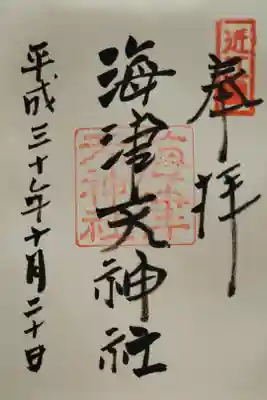 近
奉拝
海津天神社
海津
天神社
平成三十年十月二十日